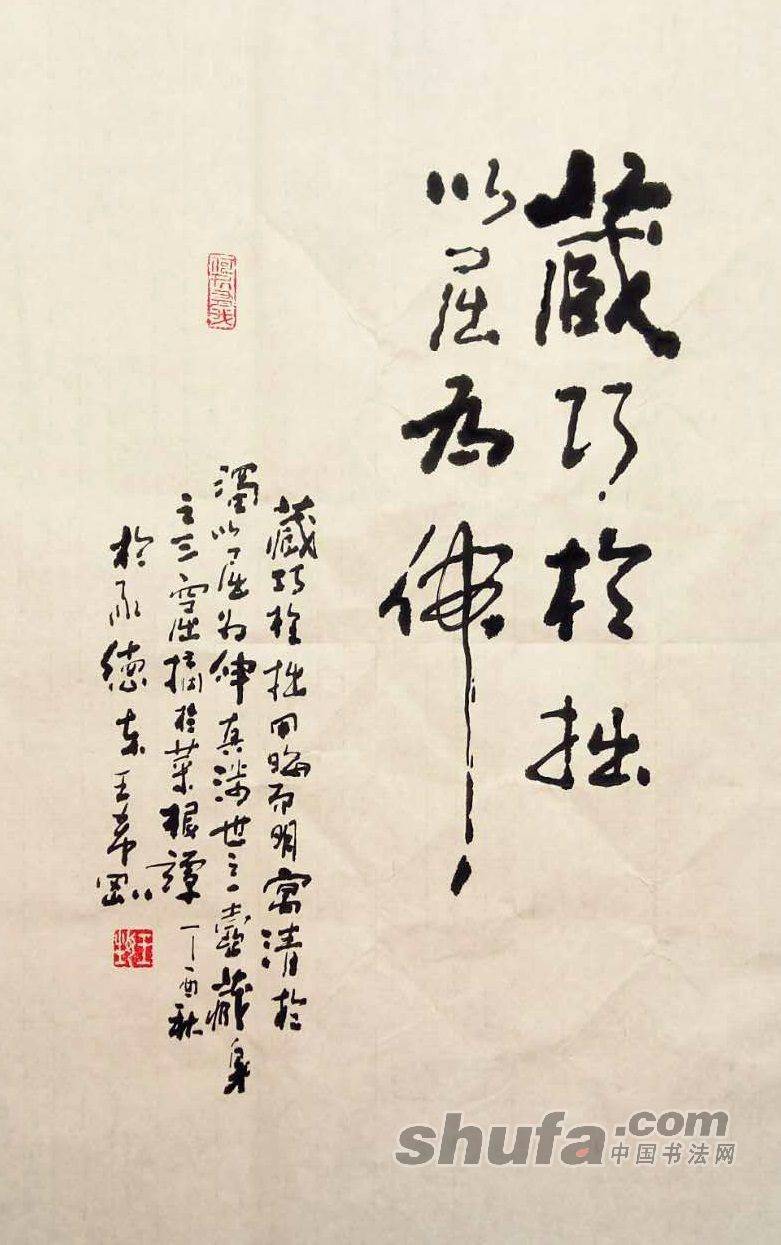 藏巧於拙
以屈為伸
藏巧於拙用晦而明寓清於
濁以屈為伸真涉世之一壺藏身
之三窟屈摘於菜根譚丁酉秋
於承德市王希
shufa.com
中国书法网